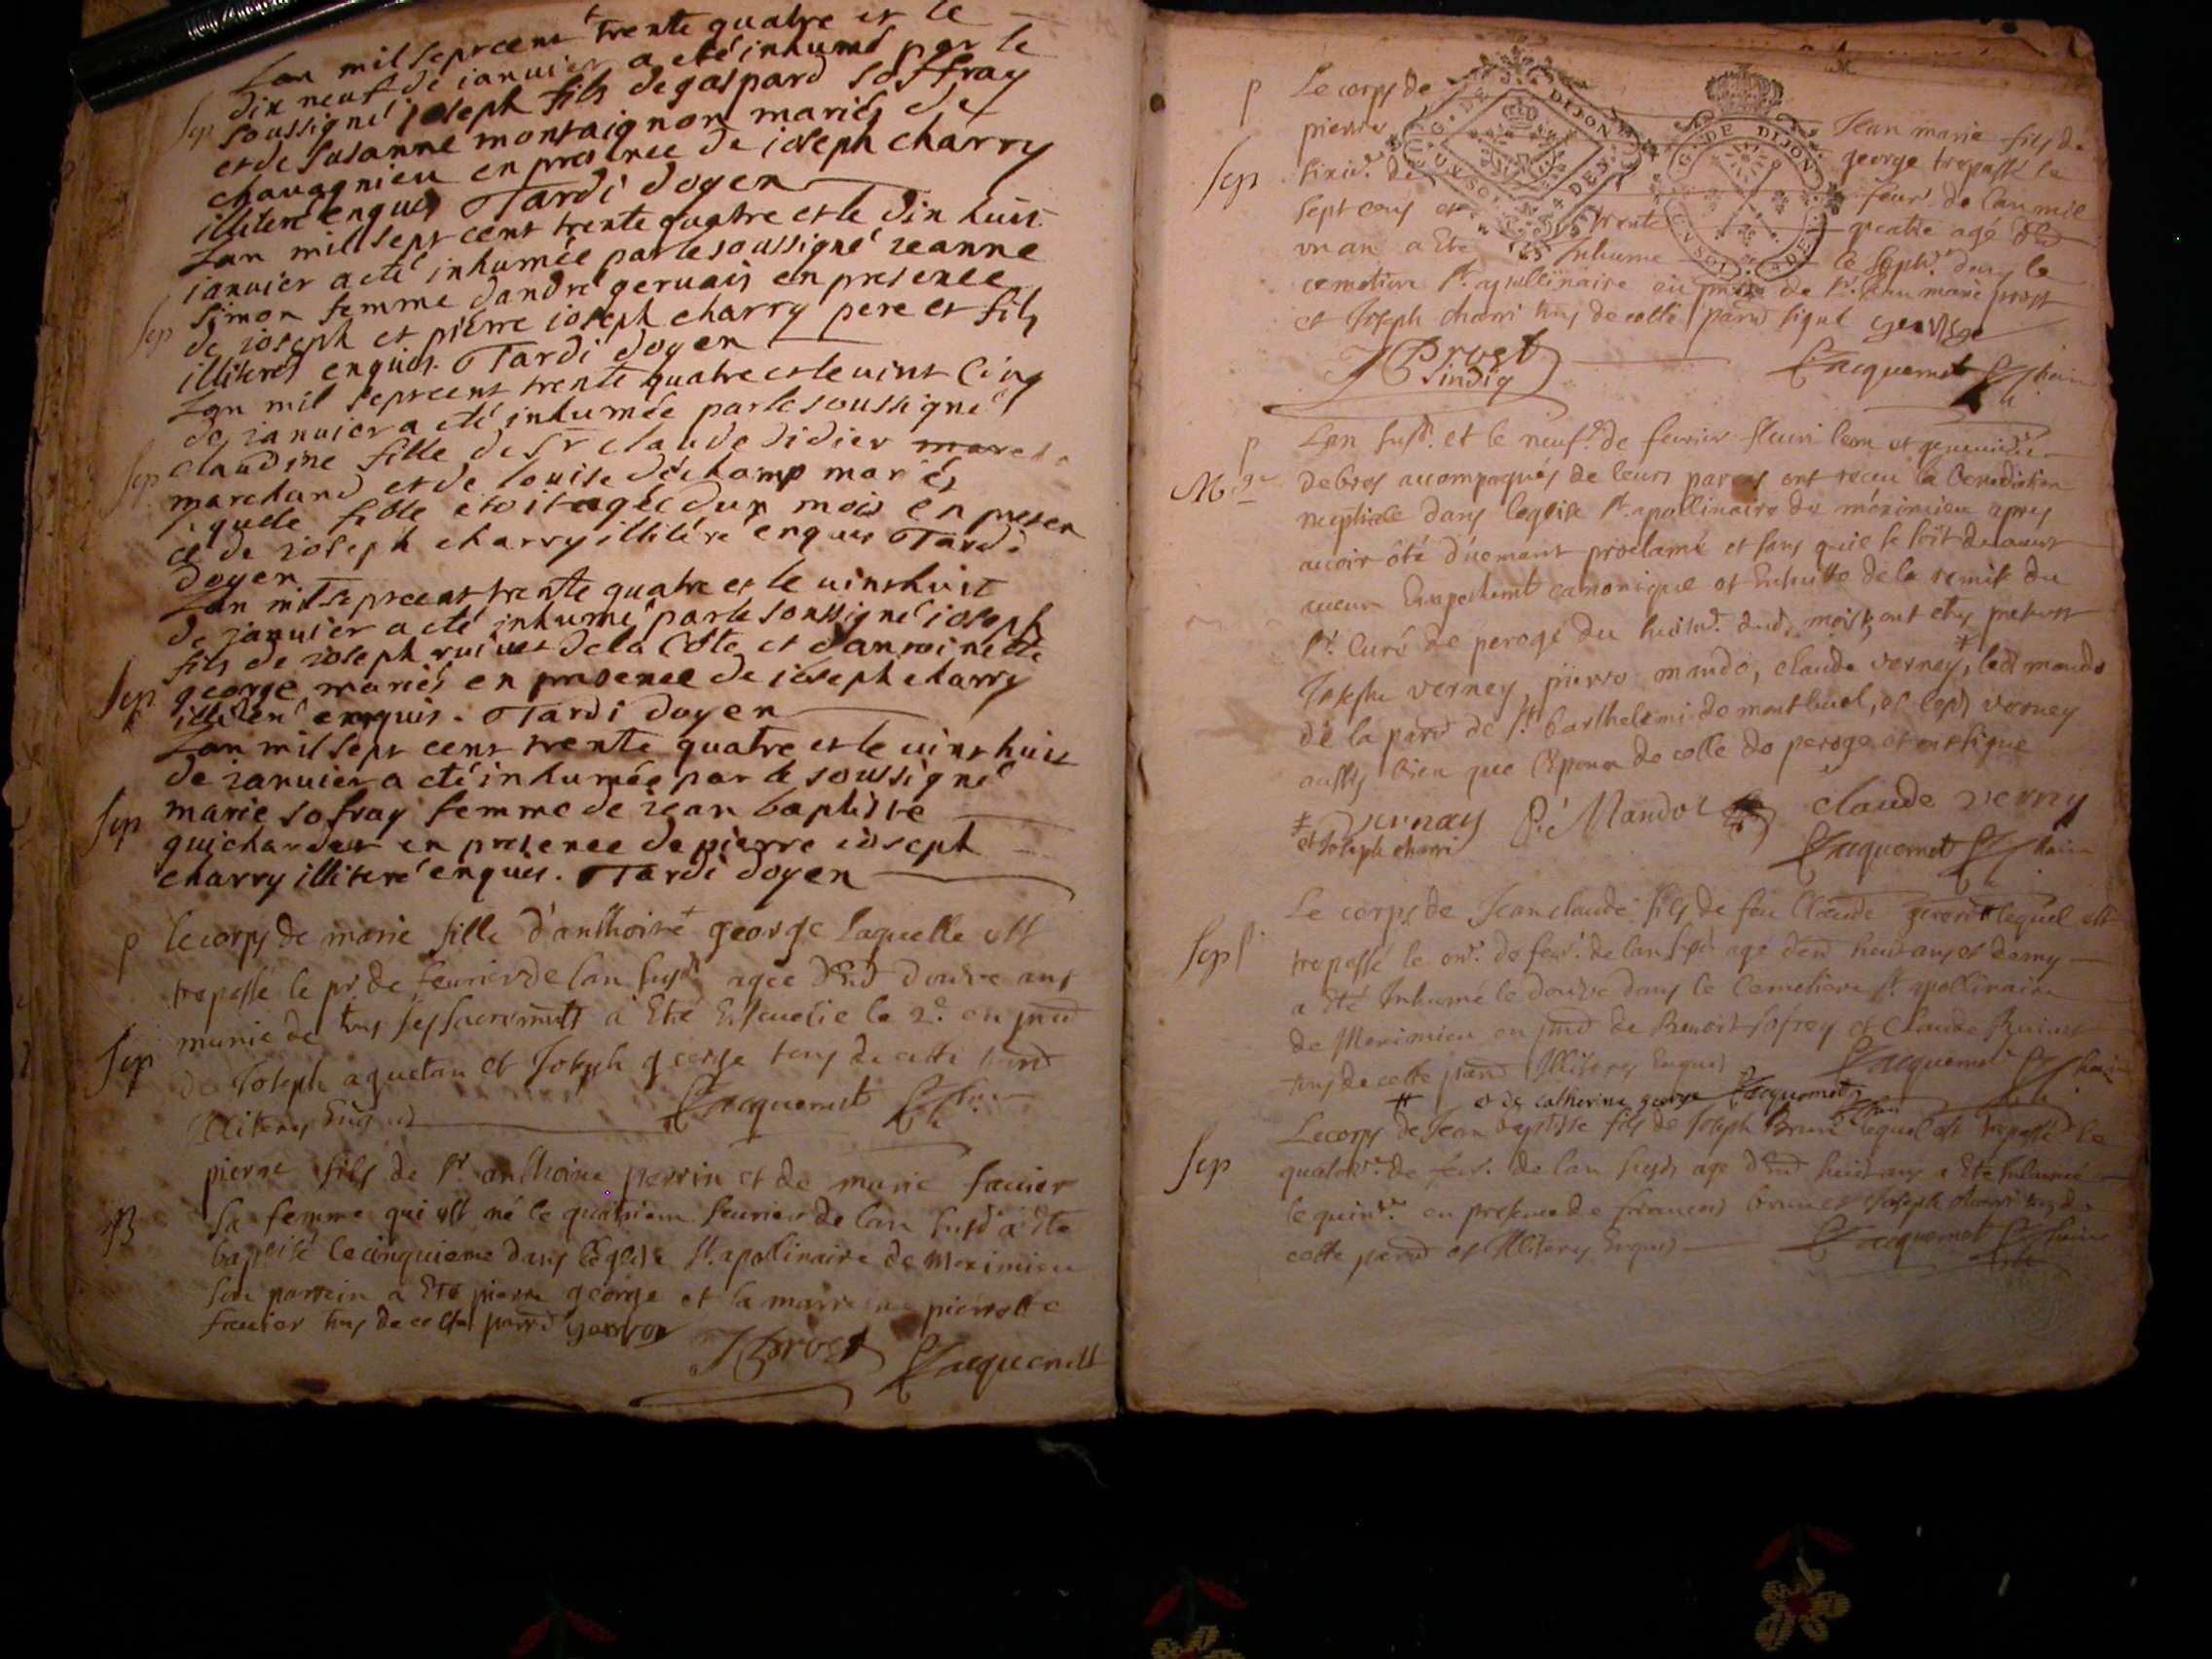 Lan mil sept cent trente quatre et le
dix neuf de ianuier a eté inhumé par le
Sep soussigné joseph fils de gaspard soffray
et de susanne montaignon mariés de
chauagnieu en presence de ioseph charry
illiteré enquis Tardi doyen
Lan mil sept cent trente quatre et le dix huit
ianuier a eté inhumée par le soussigné ieanne
Sep simon femme dandré geruais en presence
de ioseph et pierre ioseph charry pere et fils
illiterés enquis. Tardi doyen
Lan mil sept cent trente quatre et le uint cinq
de ianuier a eté inhumée par le soussigné
Sep claudine fille de sr claude didier
marchand et de louise dechamp mariés
fille etoit agée dun mois en presen
ce de ioseph charry illiteré enquis Tardi
doyen
Lan mil sept cent trente quatre et le uint huit
de ianuier a eté inhumé par le soussigné ioseph
fils de ioseph ruivet de la Côte et danthoinette
Sep george mariés en presence de ioseph charry
illiteré enquis. Tardi doyen
Lan mil sept cent trente quatre et le uint huit
de ianuier a eté inhumée par le soussigné
Sep marie sofray femme de iean baptiste
guichardet en presence de pierre ioseph
charry illiteré enquis. Tardi doyen
p le corps de marie fille d'anthoine george laquelle est
trepassé le pr de feurier de lan susd agée d'End douze ans
munie de tous ses sacremants a Eté Enseuelie le 2e en pnce
Sep de Joseph aguetan et Joseph george tous de cette parr
Illiterés Enquis Jacquemet
pierre fils de sr anthoine perrin et de marie fauier
B Sa femme qui est né le quatriem feurier de lan susd a Eté
baptisé le cinquieme dans leglise st apollinaire de Meximieu
Son parrein a Eté pierre george et la marreine pierrotte
fauier tous de cette parr george JProst Jacquemet
p Le corps de Jean marie fils de
pierre george trepassé le
Sep sixie. de feur. de lan mil
sept cens et trente quatre agé d'End
un an a Eté Inhumé le sepie. dans le
cemetiere st. apollinaire en pnce de sr. Jean marie prost
et Joseph charri tous de cette parr signé george
JProst
Sindiq Jacquemet
p Lan susd. et le neufe. de feurier fleuri leom et geneuieue
M.ge debros accompagnés de leurs parens ont receu la benediction
neptiale dans leglise st. apollinaire de meximieu apres
auoir été duemant proclamé et sans qu'il se soit decouuert
aucun Empechemt canonique et Ensuitte de la remise du
sr. Curé de peroge du huitie. dud. mois, ont etes presens
Joseph verney, pierre mando, claude verney, led mando
de la parr de st barthelemi de montluel, et lesd verney
aussy bien que lepoux de celle de peroge et ont signé
et Joseph charri Vernay Pe Mandot claude verney
Jacquemet
Le corps de Jean claude fils de feu Claude lequel est
Sep trepassé le onze. de feur. de lan susd agé d'End huit ans et demy
a Eté Inhumé le douze dans le cemetiere st. apollinaire
de Meximieu en pnce de Benoit sofrey et Claude Ruiuet
tous de cette parr Illiterés Enquis Jacquemet
# et de catherine george Jacquemet
Le corps de Jean baptiste fils de Joseph Brun lequel est trepassé le
Sep quatorze. de feur. de lan susd. agé d'End huit ans a Eté Inhumé
le quinze. en presence de francois brun et Joseph charri tous de
cette parr et Illiterés Enquis Jacquemet
G. DE DIJON
G. DE DIJON